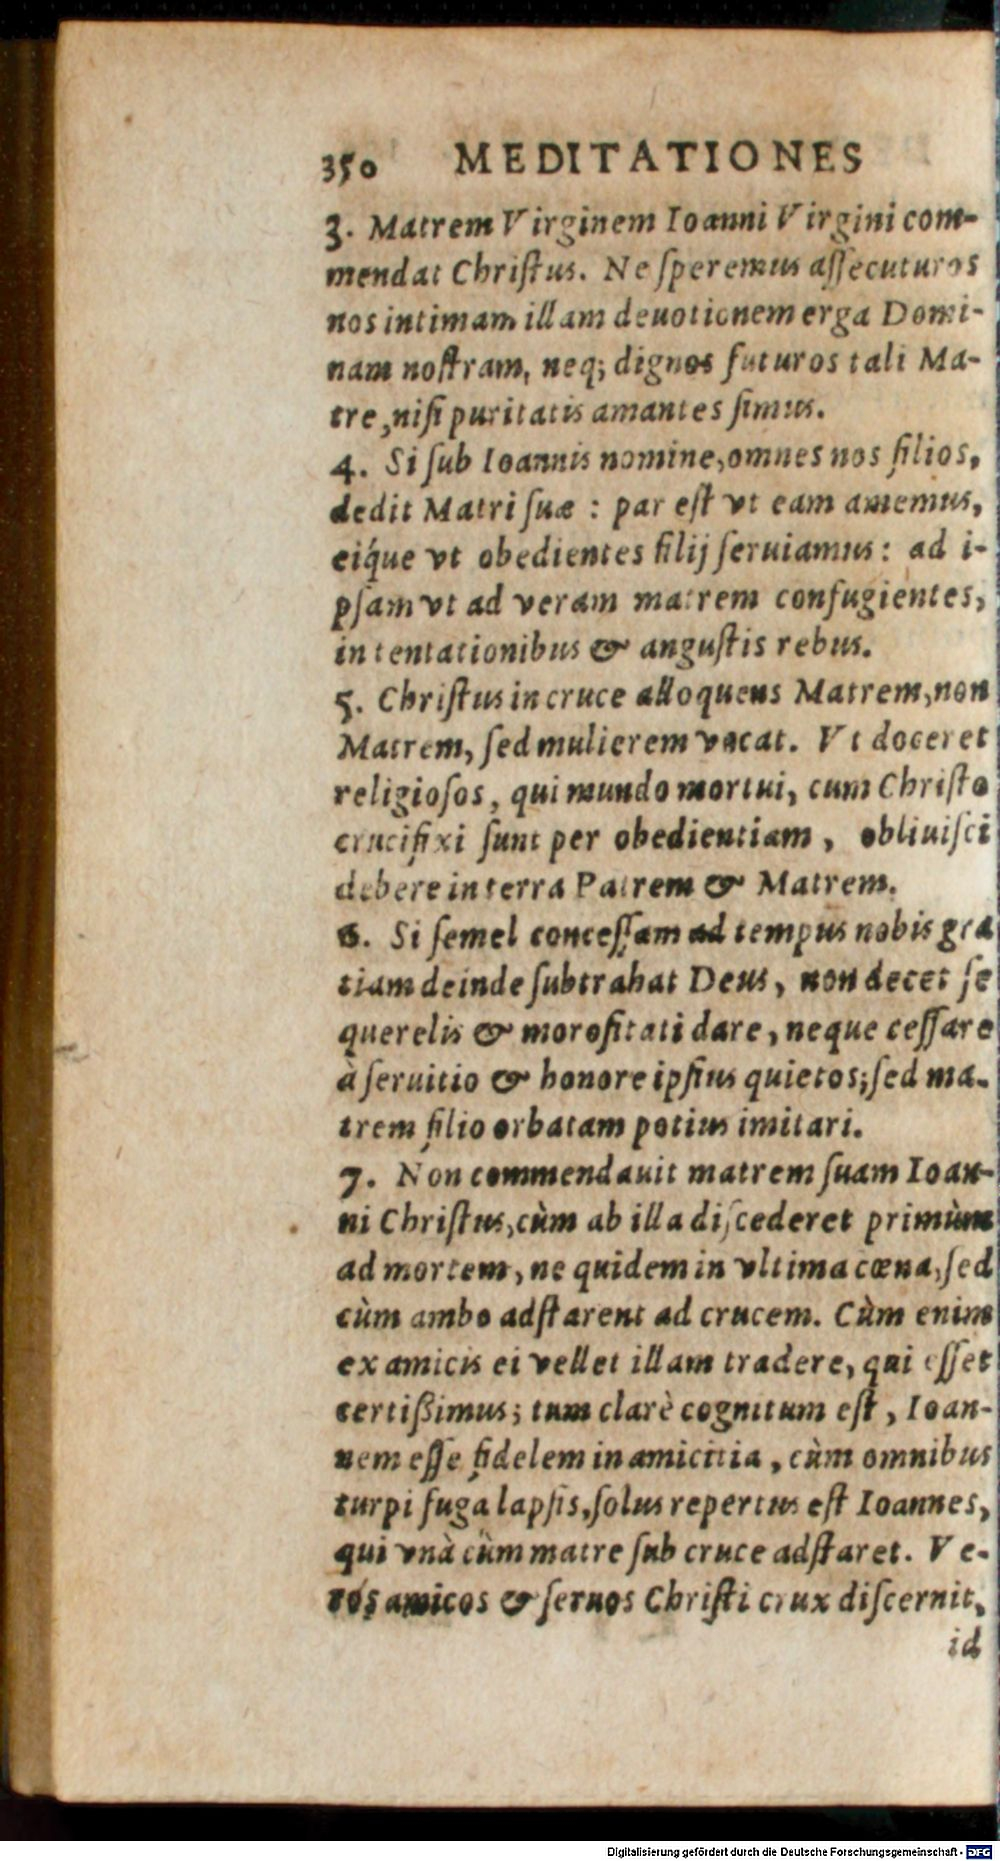 350 MEDITATIONES
3. Matrem Virginem Ioanni Virgini com-
mendat Chriſtus. Ne ſperemus aſſecuturos
nos intimam illam deuotionem erga Domi-
nam noſtram, neq; dignos futuros tali Ma-
tre, niſi puritatis amantes ſimus.
4. Si ſub Ioannis nomine, omnes nos filios,
dedit Matri ſuæ : par eſt vt eam amemus,
eiq́ue vt obedientes filij ſeruiamus: ad i-
pſam vt ad veram matrem confugientes,
in tentationibus & anguſtis rebus.
5. Chriſtus in cruce alloquens Matrem, non
Matrem, ſed mulierem vocat. Vt doceret
religioſos, qui mundo mortui, cum Chriſto
crucifixi ſunt per obedientiam, obliuiſci
debere in terra Patrem & Matrem.
6. Si ſemel conceſſam ad tempus nobis gra
tiam deinde ſubtrahat Deus, non decet ſe
querelis & moroſitati dare, neque ceſſare
à ſeruitio & honore ipſius quietos; ſed ma-
trem filio orbatam potius imitari.
7. Non commendauit matrem ſuam Ioan-
ni Chriſtus, cùm ab illa diſcederet primùm
ad mortem, ne quidem in vltima cœna, ſed
cùm ambo adſtarent ad crucem. Cùm enim
ex amicis ei vellet illam tradere, qui eſſet
certißimus; tum clarè cognitum eſt, Ioan-
nem eſſe fidelem in amicitia, cùm omnibus
turpi fuga lapſis, ſolus repertus eſt Ioannes,
qui vnà cùm matre ſub cruce adſtaret. Ve-
ros amicos & ſeruos Chriſti crux diſcernit,
id
Digitalisierung gefördert durch die Deutsche Forschungsgemeinschaft - DFG